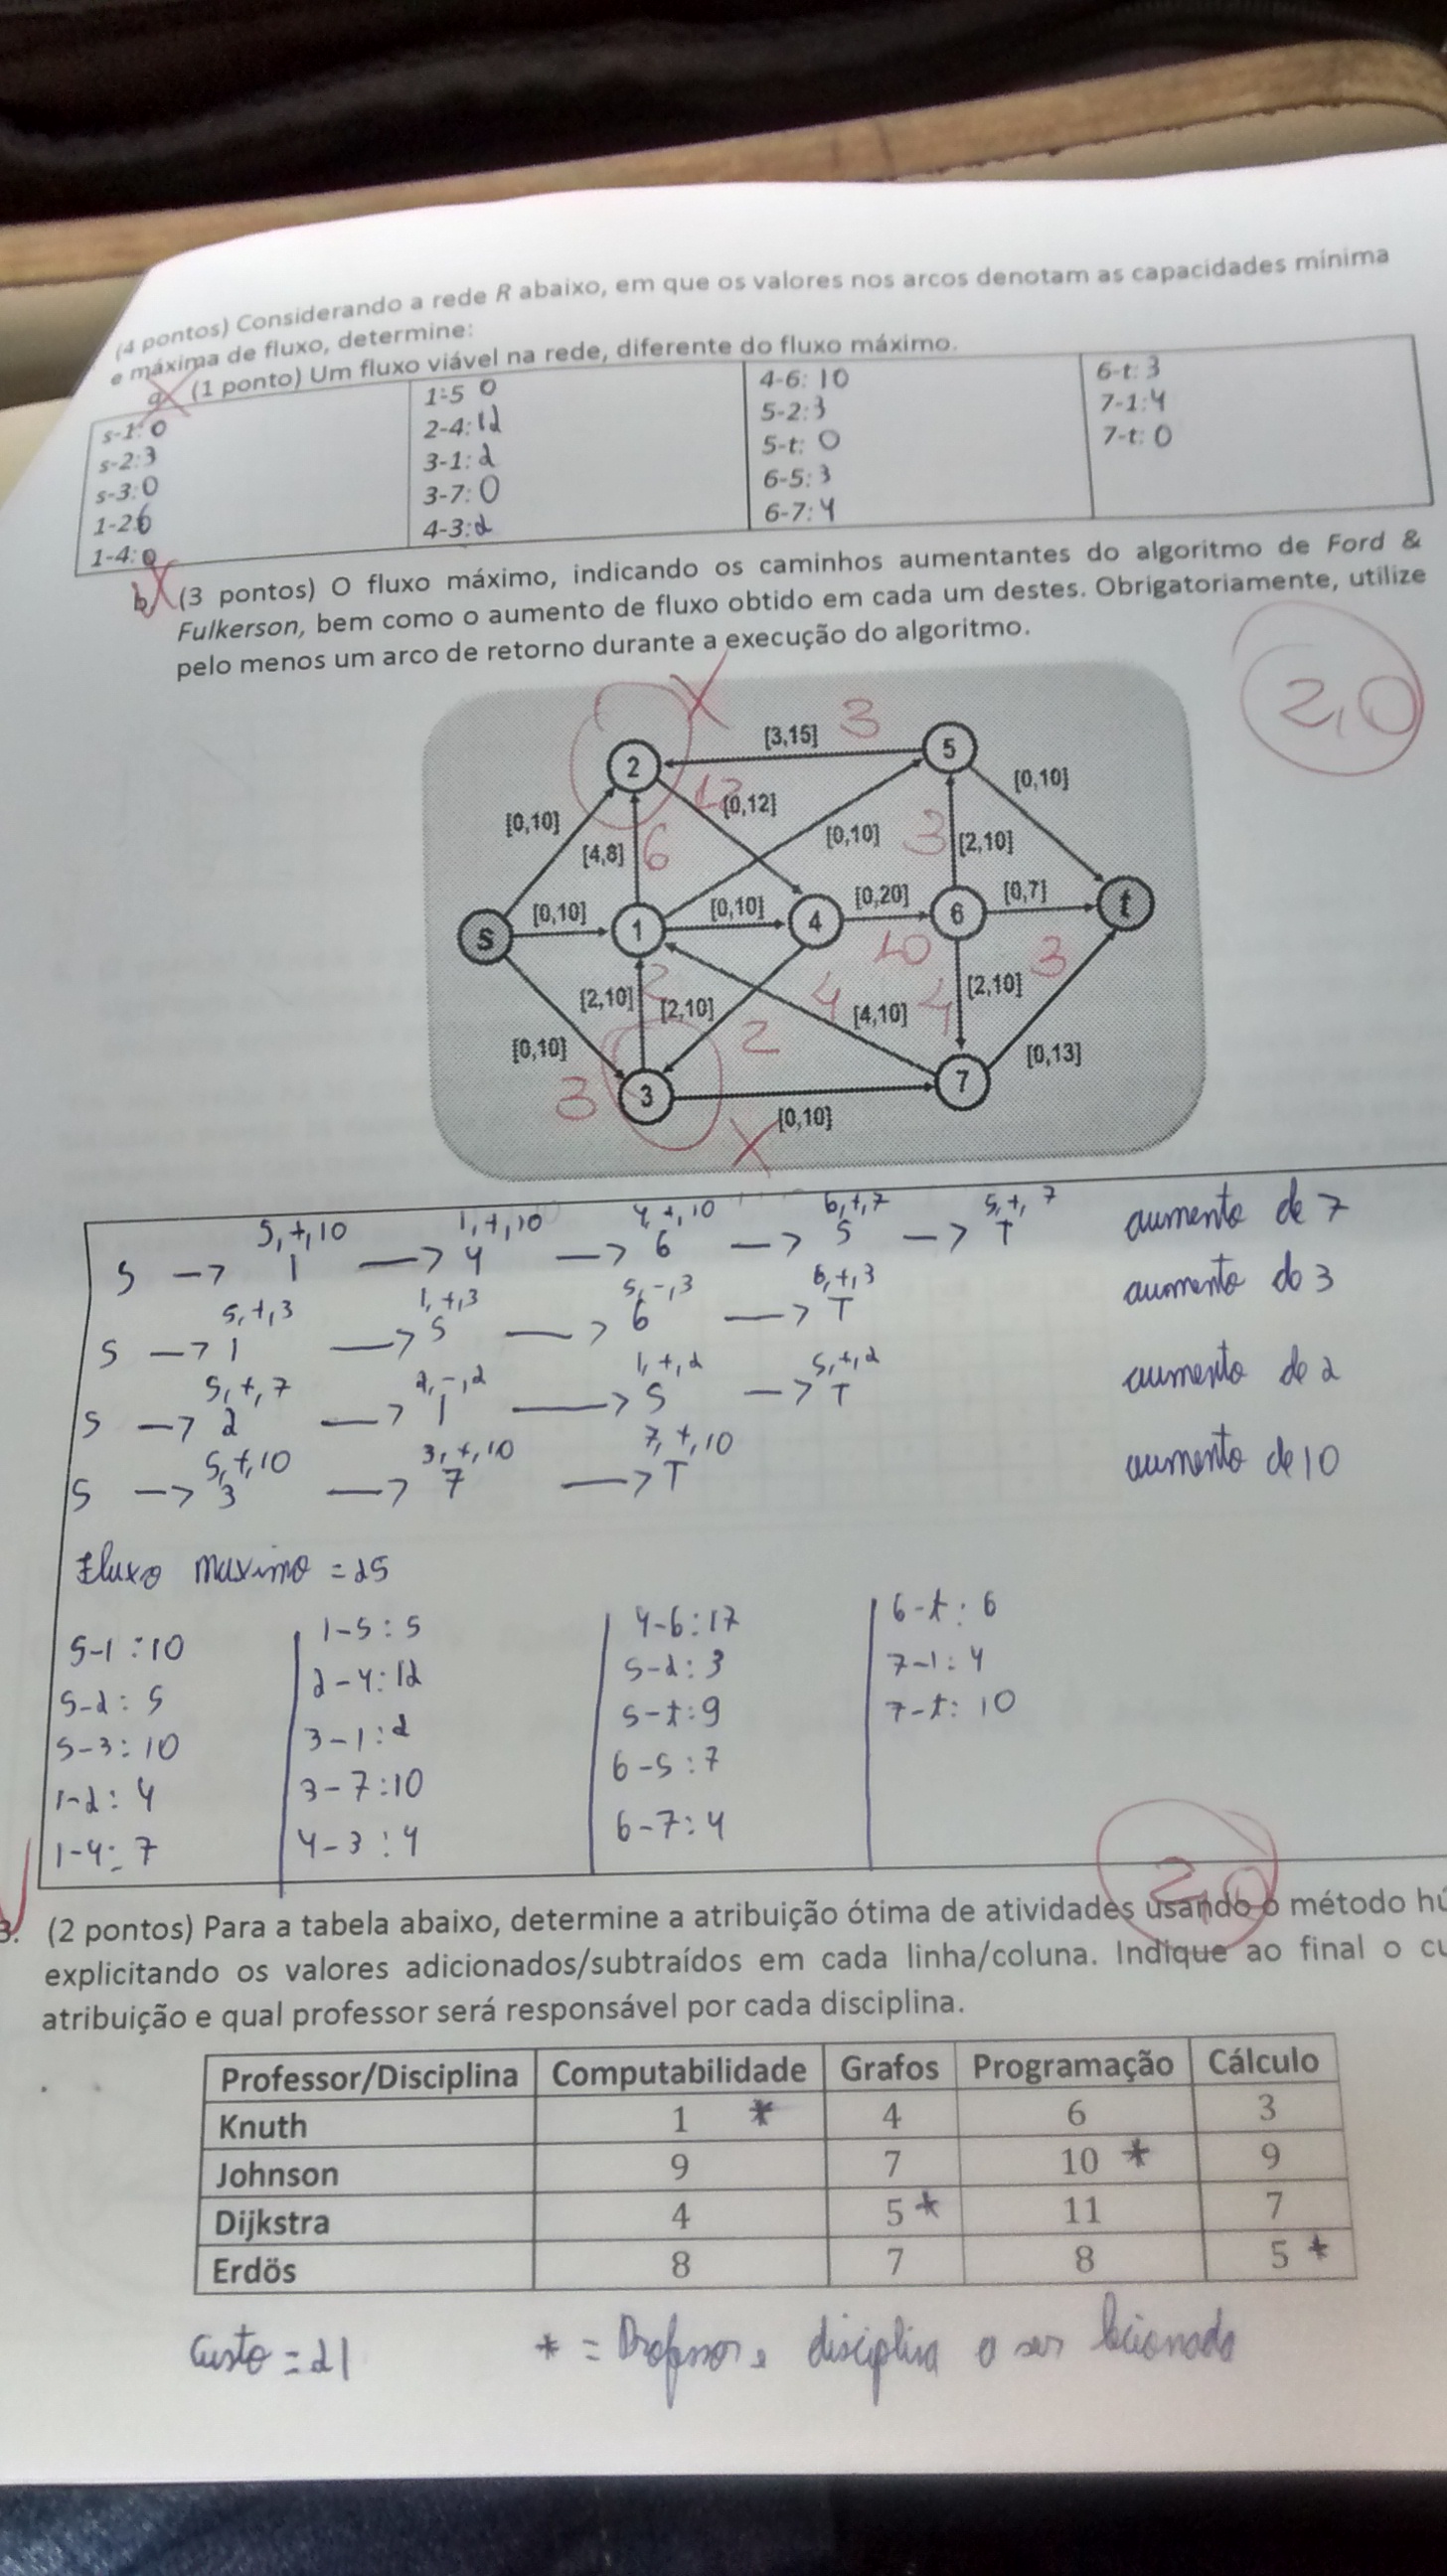 (4 pontos) Considerando a rede R abaixo, em que os valores nos arcos denotam as capacidades mínima
e máxima de fluxo, determine:
a. (1 ponto) Um fluxo viável na rede, diferente do fluxo máximo.
s-1: 0 1-5 0 4-6: 10 6-t: 3
s-2: 3 2-4: 12 5-2: 3 7-1: 4
s-3: 0 3-1: 2 5-t: 0 7-t: 0
1-2: 6 3-7: 0 6-5: 3
1-4: 0 4-3: 2 6-7: 4
b. (3 pontos) O fluxo máximo, indicando os caminhos aumentantes do algoritmo de Ford &
Fulkerson, bem como o aumento de fluxo obtido em cada um destes. Obrigatoriamente, utilize
pelo menos um arco de retorno durante a execução do algoritmo.
2,0
X
[3,15] 3
2 5
[0,10] 12 [0,12] [0,10]
[4,8] 6 [0,10] 3 [2,10]
[0,10] [0,10] [0,20] [0,7]
s 1 4 6 t
10 3
[2,10] 2 [2,10] 4 [4,10] 4 [2,10]
2
[0,10] [0,13]
3 3 7
X [0,10]
S,+,10 1,+,10 4,+,10 6,+,7 5,+,7
S -> 1 -> 4 -> 6 -> 5 -> T aumento de 7
S,+,3 1,+,3 5,-,3 6,+,3
S -> 1 -> 5 -> 6 -> T aumento de 3
S,+,7 2,-,2 1,+,2 5,+,2
S -> 2 -> 1 -> 5 -> T aumento de 2
S,+,10 3,+,10 7,+,10
S -> 3 -> 7 -> T aumento de 10
Fluxo maximo = 25
S-1: 10 1-5: 5 4-6: 17 6-t: 6
S-2: 5 2-4: 12 5-2: 3 7-1: 4
S-3: 10 3-1: 2 5-t: 9 7-t: 10
1-2: 4 3-7: 10 6-5: 7
1-4: 7 4-3: 4 6-7: 4
2,0
3. (2 pontos) Para a tabela abaixo, determine a atribuição ótima de atividades usando o método
explicitando os valores adicionados/subtraídos em cada linha/coluna. Indique ao final o
atribuição e qual professor será responsável por cada disciplina.
Professor/Disciplina Computabilidade Grafos Programação Cálculo
Knuth 1 * 4 6 3
Johnson 9 7 10 * 9
Dijkstra 4 5 * 11 7
Erdös 8 7 8 5 *
Custo = 21 * = Professor e disciplina a ser lecionada